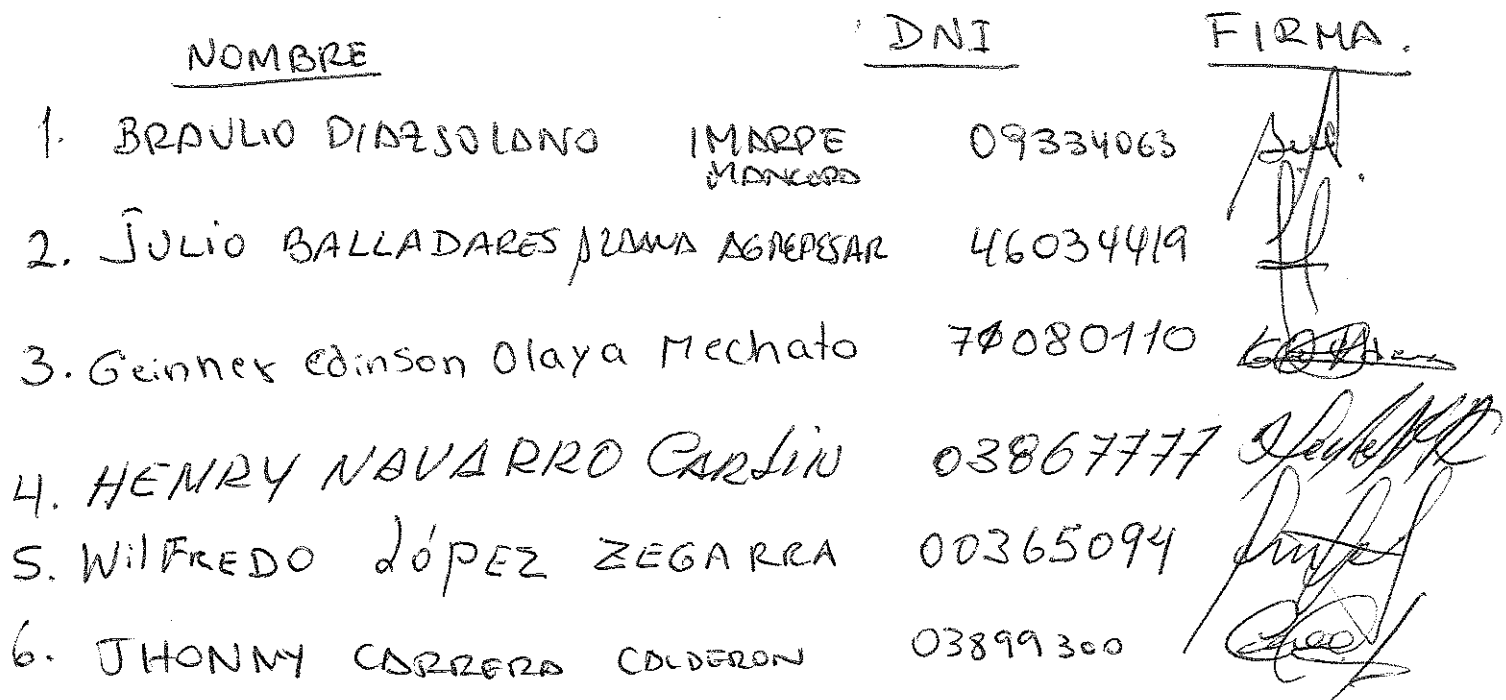 NOMBRE DNI FIRMA.
1. BRAULIO DIAZ SOLANO IMARPE 09334063
MANCORA
2. JULIO BALLADARES AGREPESAR 46034419
3. Geinner edinson Olaya Mechato 71080110
4. HENRY NAVARRO CARLIN 03867777
5. WilFREDO LóPEZ ZEGARRA 00365094
6. JHONNY CARRERA CALDERON 03899300